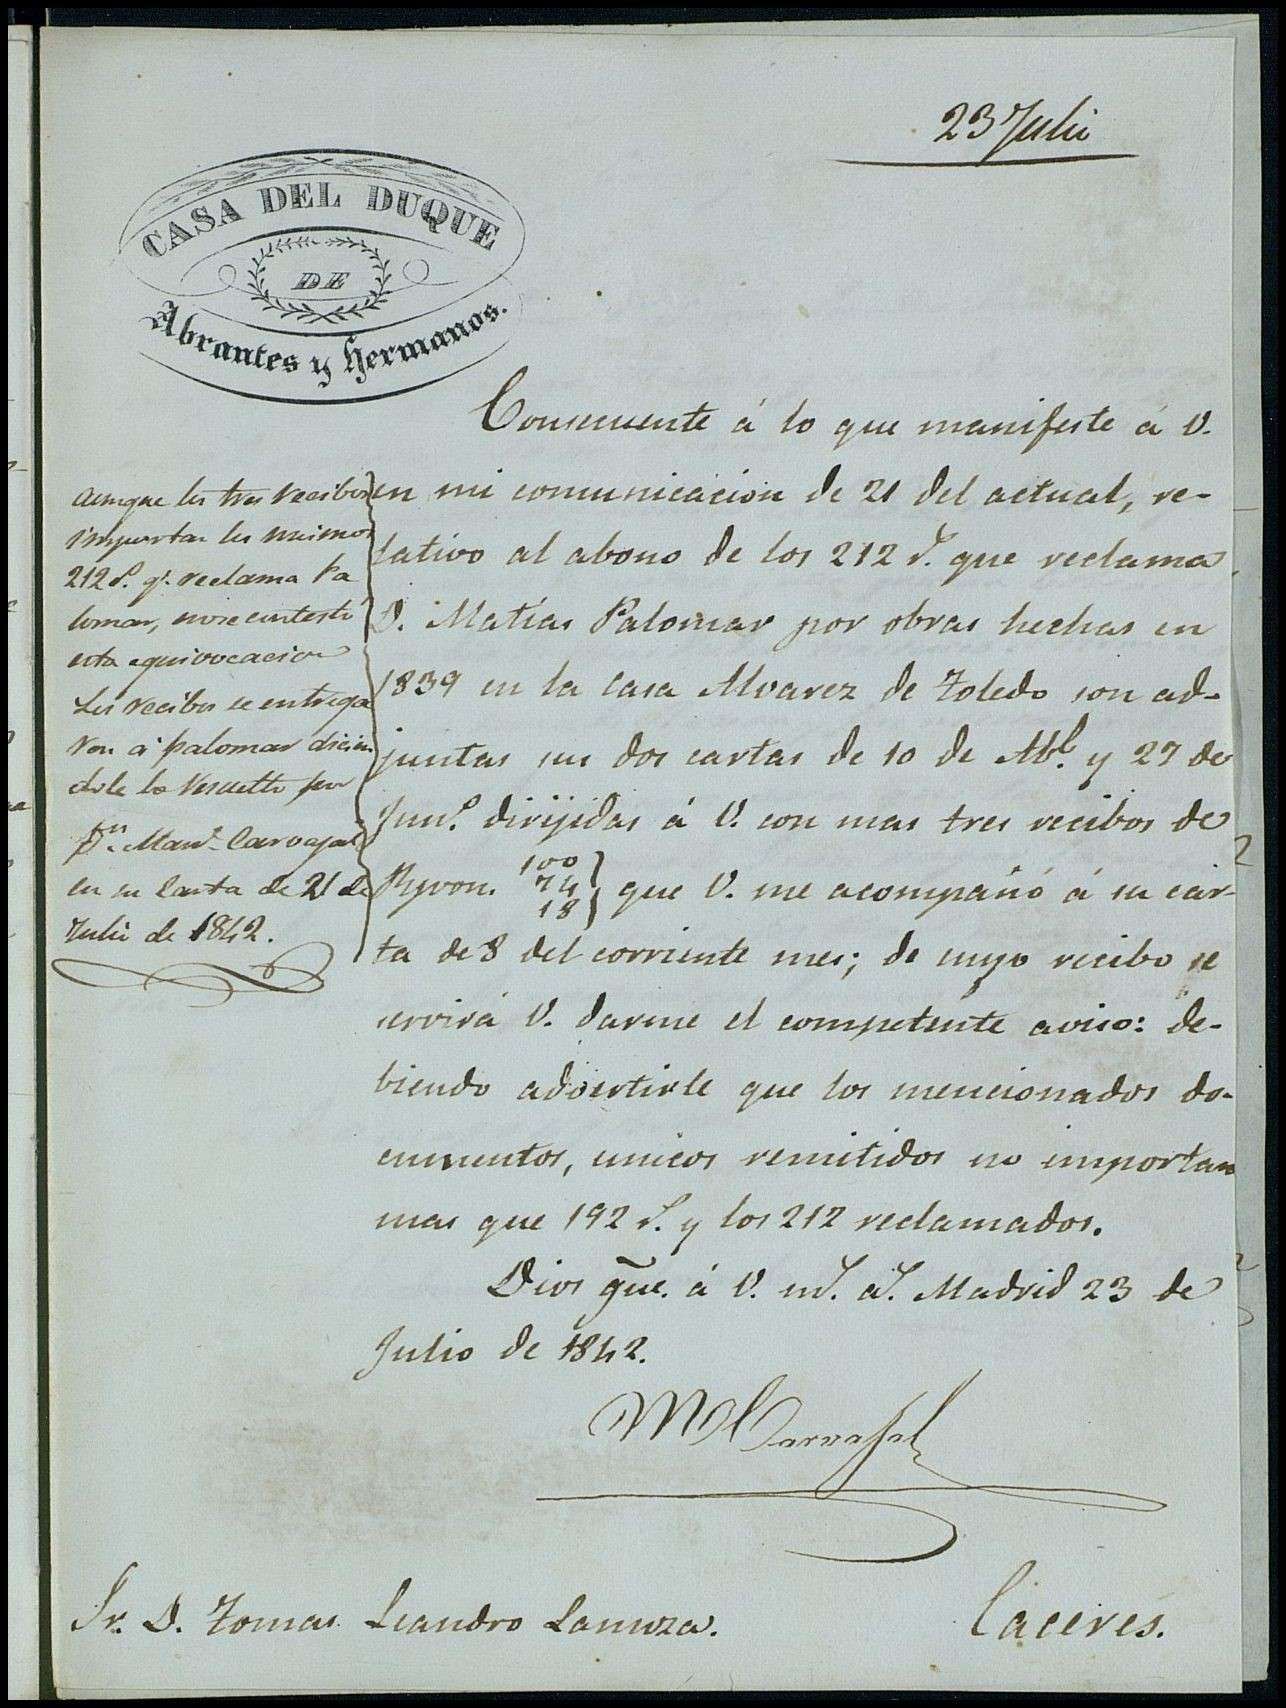 23 Julio
CASA DEL DUQUE
DE
Abrantes y Hermanos.
Consecuente á lo que manifeste á V.
en mi comunicacion de 21 del actual, re-
lativo al abono de los 212 r.s que reclama
D. Matías Palomar por obras hechas en
1839 en la casa Alvarez de Toledo son ad-
juntas sus dos cartas de 10 de Ab.l y 27 de
Jun.o dirijidas á V. con mas tres recibos de
100
74
18
que V. me acompañó á su car-
ta de 8 del corriente mes; de cuyo recibo se
servirá V. darme el competente aviso: de-
biendo advertirle que los mencionados do-
cumentos, unicos remitidos no importan
mas que 192 r.s y los 212 reclamados.
Dios gue. á V. m.s a.s Madrid 23 de
Julio de 1842.
M Carvajal
Aunque los tres recibos
importan los mismos
212 r.s q.e reclama Pa
lomar, no se contestó
esta equivocacion
Los recibos se entrega
ron á Palomar dicien
dole lo resuelto por
D.n Man.l Carvajal
en su Carta de 21 de
Julio de 1842.
Sr. D. Tomas Leandro Lanuza.
Caceres.